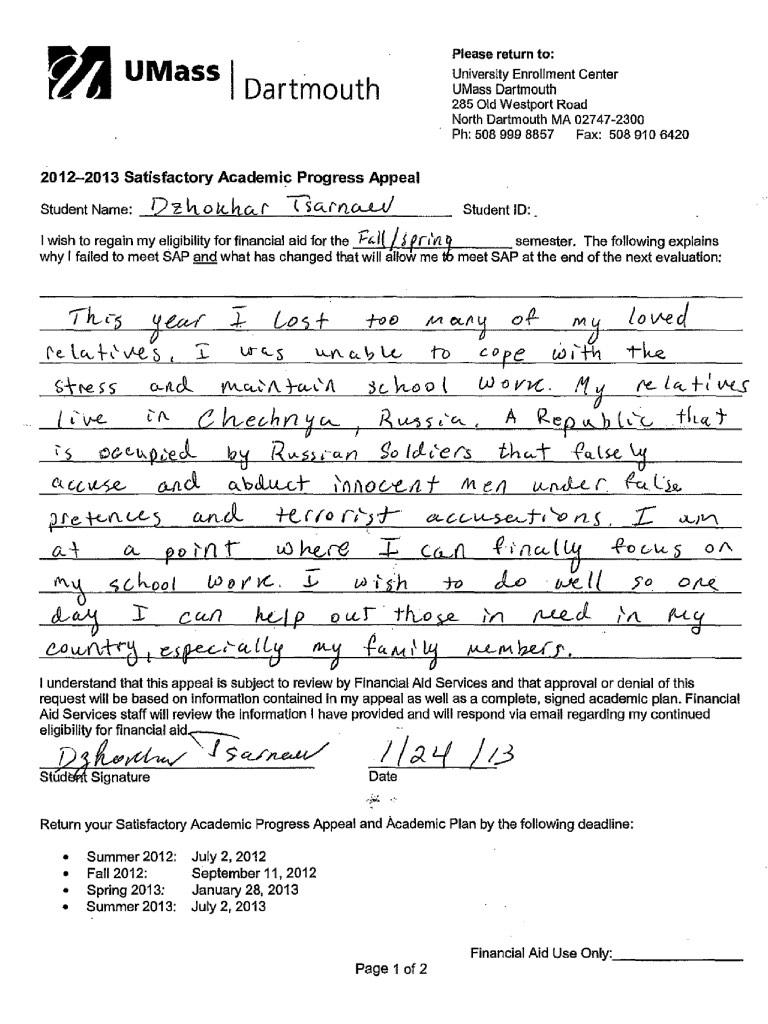 UMass | Dartmouth
Please return to:
University Enrollment Center
UMass Dartmouth
285 Old Westport Road
North Dartmouth MA 02747-2300
Ph: 508 999 8857 Fax: 508 910 6420
2012–2013 Satisfactory Academic Progress Appeal
Student Name: Dzhokhar Tsarnaev Student ID:
I wish to regain my eligibility for financial aid for the Fall/spring semester. The following explains
why I failed to meet SAP and what has changed that will allow me to meet SAP at the end of the next evaluation:
This year I lost too many of my loved
relatives. I was unable to cope with the
stress and maintain school work. My relatives
live in Chechnya, Russia. A Republic that
is occupied by Russian Soldiers that falsely
accuse and abduct innocent men under false
pretences and terrorist accusations. I am
at a point where I can finally focus on
my school work. I wish to do well so one
day I can help out those in need in my
country, especially my family members.
I understand that this appeal is subject to review by Financial Aid Services and that approval or denial of this
request will be based on information contained in my appeal as well as a complete, signed academic plan. Financial
Aid Services staff will review the information I have provided and will respond via email regarding my continued
eligibility for financial aid.
Dzhokhar Tsarnaev 1/24/13
Student Signature Date
Return your Satisfactory Academic Progress Appeal and Academic Plan by the following deadline:
• Summer 2012: July 2, 2012
• Fall 2012: September 11, 2012
• Spring 2013: January 28, 2013
• Summer 2013: July 2, 2013
Financial Aid Use Only:
Page 1 of 2